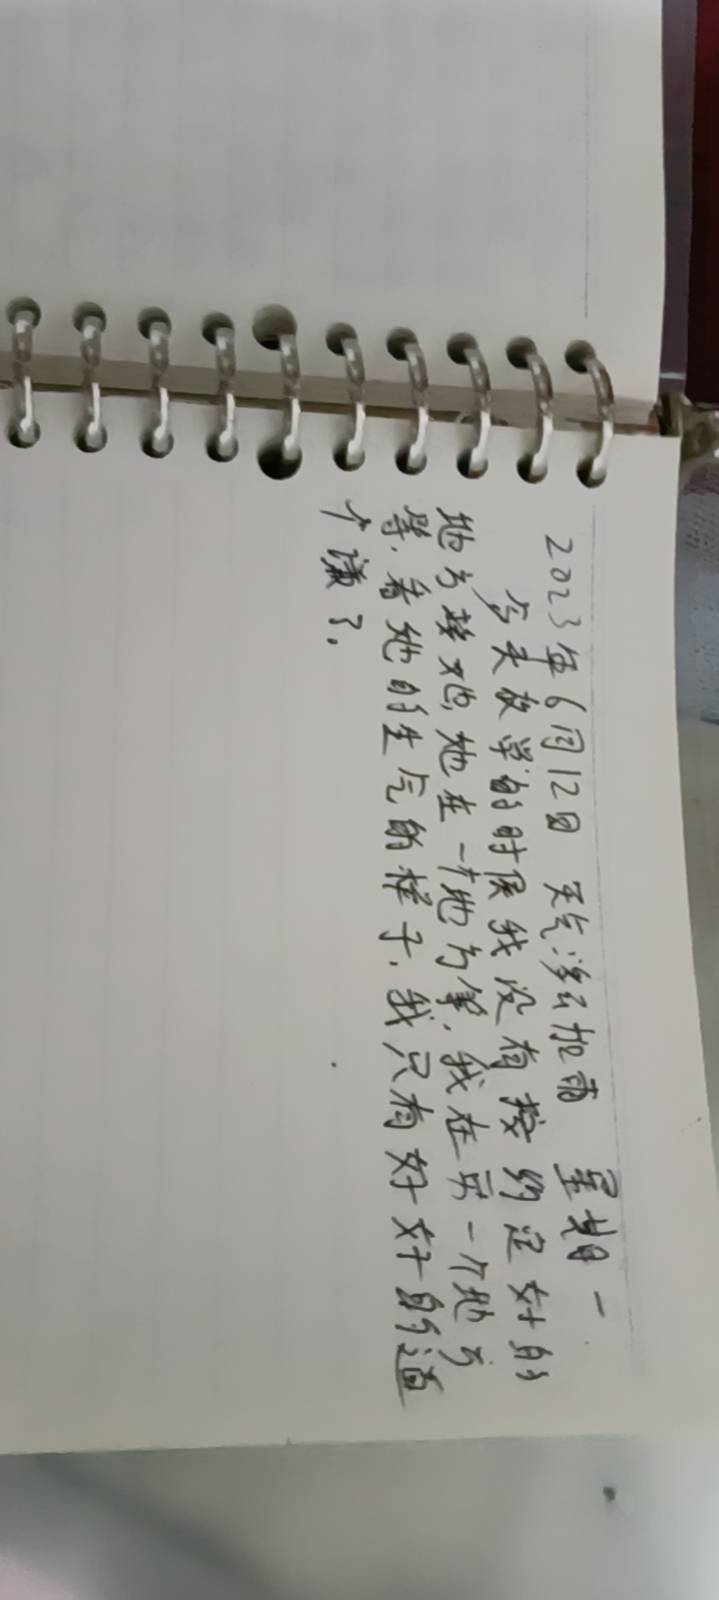 2023年6月12日 天气:多云加雨 星期一
今天放学的时候我没有按约定好的
地方接她,她在一个地方等,我在另一个地方
等,看她的生气的样子,我只有好好的道
个谦了.